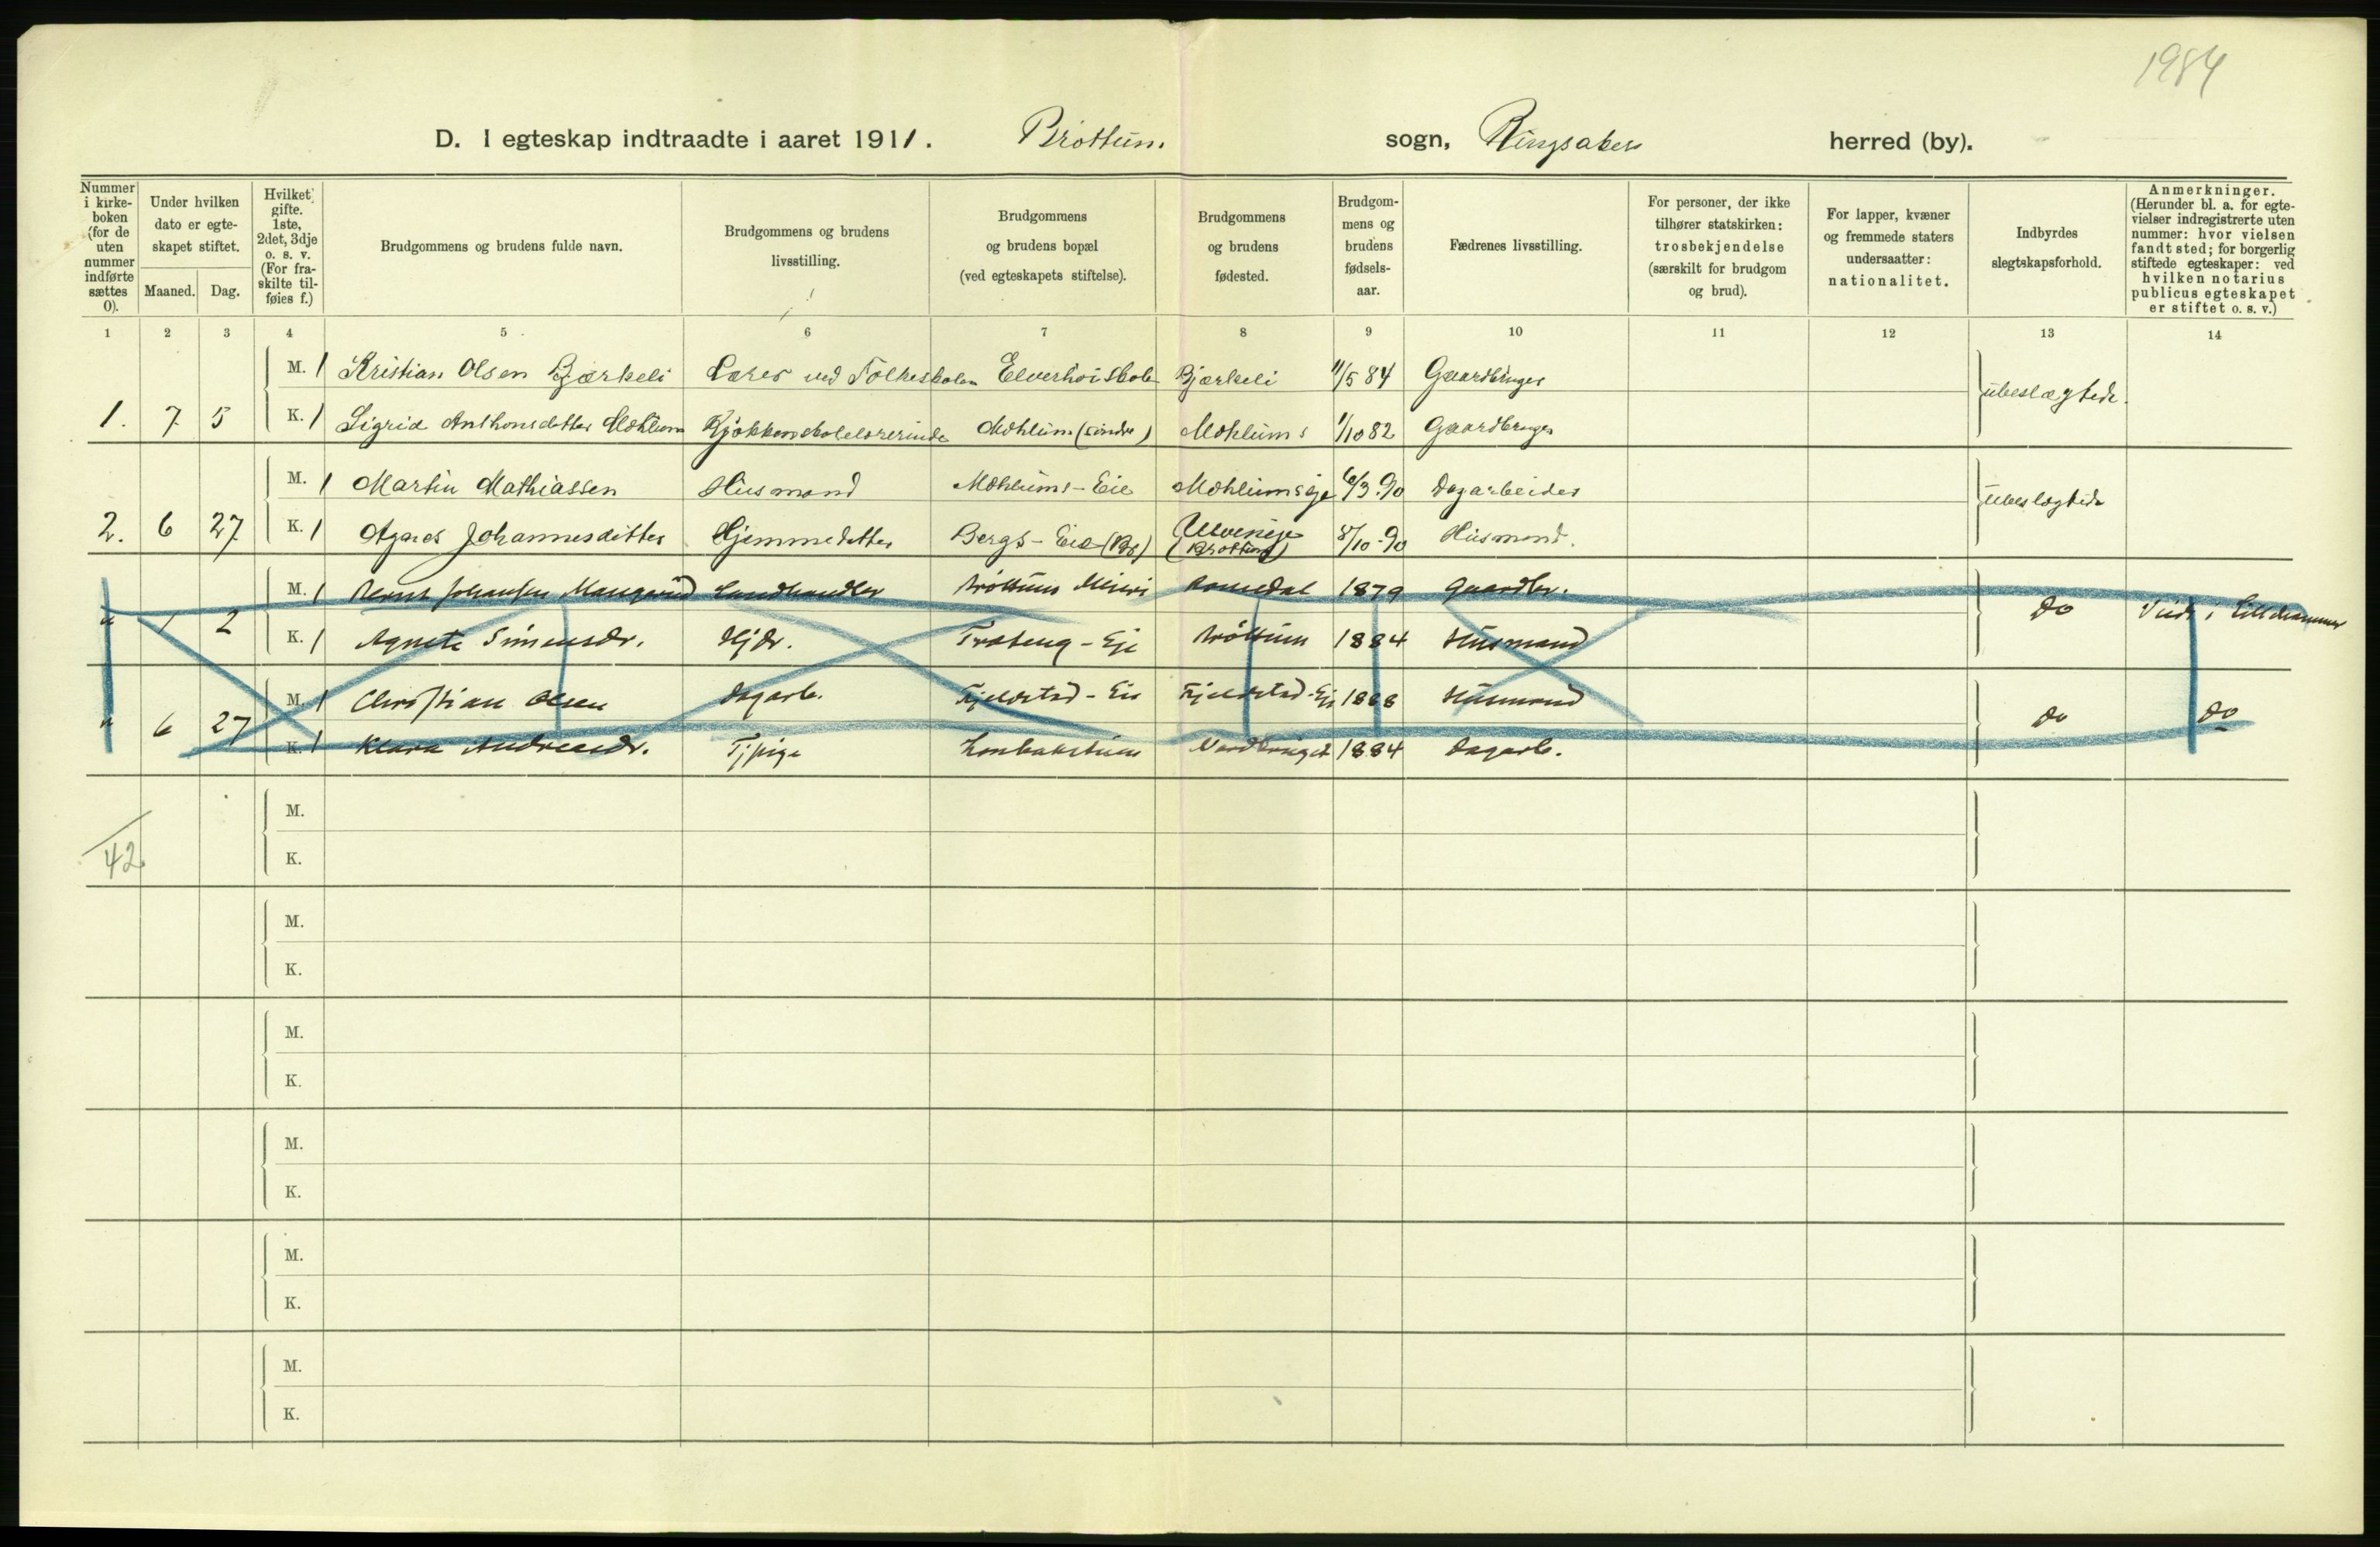 1984
D. I egteskap indtraadte i aaret 1911. Brøttum sogn, Ringsaker herred (by).
Nummer i kirkeboken (for de uten nummer indførte sættes 0).
Under hvilken dato er egteskapet stiftet.
Maaned. Dag.
Hvilket gifte. 1ste, 2det, 3dje o. s. v. (For fraskilte tilføies f.)
Brudgommens og brudens fulde navn.
Brudgommens og brudens livsstilling.
Brudgommens og brudens bopæl (ved egteskapets stiftelse).
Brudgommens og brudens fødested.
Brudgommens og brudens fødselsaar.
Fædrenes livsstilling.
For personer, der ikke tilhører statskirken: trosbekjendelse (særskilt for brudgom og brud).
For lapper, kvæner og fremmede staters undersaatter: nationalitet.
Indbyrdes slegtskapsforhold.
Anmerkninger. (Herunder bl. a. for egtevielser indregistrerte uten nummer: hvor vielsen fandt sted; for borgerlig stiftede egteskaper: ved hvilken notarius publicus egteskapet er stiftet o. s. v.)
1 2 3 4 5 6 7 8 9 10 11 12 13 14
M. 1 Kristian Olsen Bjærkeli Lærer ved Folkeskolen Elverhøi skole Bjærkeli 11/5 84 Gaardbruger ubeslægtede.
1. 7 5 K. 1 Sigrid Anthonsdatter Møhlum Kjøkkenskolelærerinde Møhlum (søndre) Møhlum 1/10 82 Gaardbruger
M. 1 Martin Mathiassen Husmand Møhlums-Eie Møhlumseje 6/3 90 Dagarbeider ubeslægtede
2. 6 27 K. 1 Agnes Johannesdatter Hjemmedatter Bergs-Eie (Br) Ulvenseje (Brøttum) 8/10 90 Husmand.
M. 1 Johansen Landhandler Brøttum Romedal 1879 Gaardbr. do Viede i Lillehammer
" 1 2 K. 1 Agnete Simensdr. Hjdr. - Eje Brøttum 1884 Husmand
M. 1 Christian Olsen Dagarb. Fjeldstad-Eie Fjeldstad-Ej 1888 Husmand do do
" 6 27 K. 1 Klara Andreasdr. Tjpige 1884 Dagarb.
M.
42 K.
M.
K.
M.
K.
M.
K.
M.
K.
M.
K.